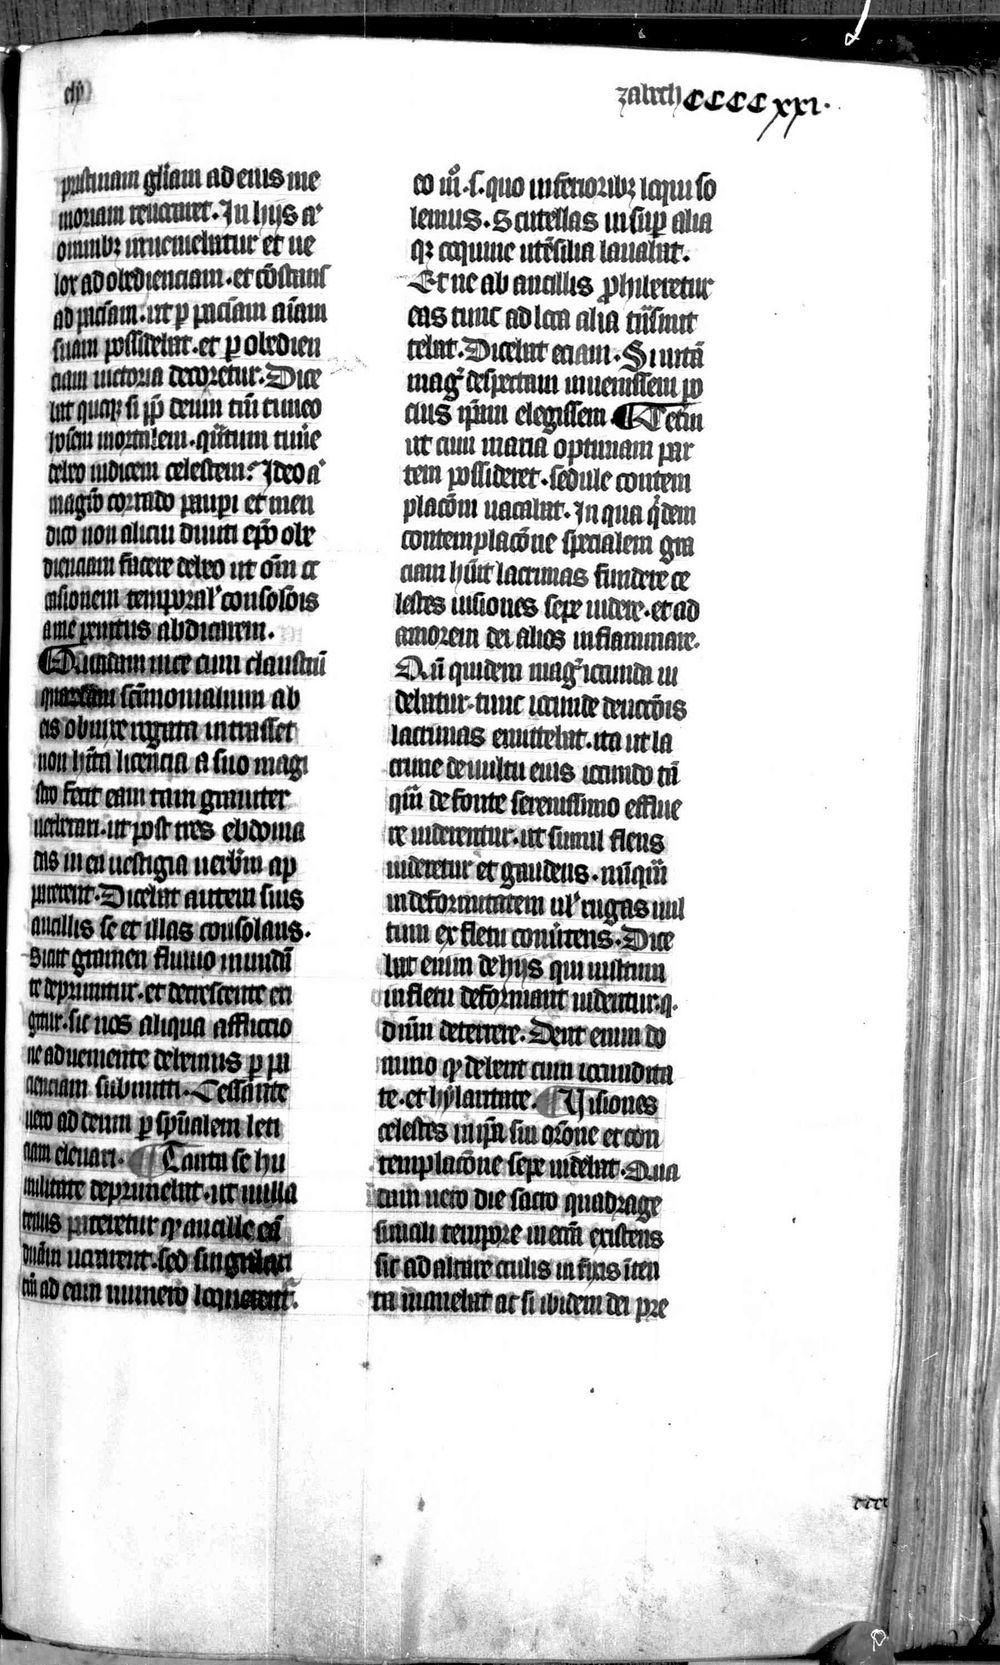 clij
zabeth CCCCxxi.
pristinam gl'iam ad eius me
moriam reuocaret. In hijs aū
omnibz inueniebatur et ue
lox ad obedienciam. et cōstans
ad pacīam. ut p̱ paciam aīam
suam possideret. et p̱ obedien
ciam uictoria decoretur. Dice
bat quoqz si ꝓp̱ deum tm̄ timeo
hoīem mortalem. qūtum timē
debeo iudicem celestem? Ideo aū
magrō corrado paup̱i et men
dico non alicui diuiti ep̄o obe
dienciam facere debeo ut om̄ oc
casionem temporal' consolōis
a me penitus abdicarem.
Quadam uice cum claustrū
quarūdam sc̄imonialium ab
eis obnixe rogata intrasset
non hīta licencia a suo magi
stro fecit eam tam grauiter
uerberari. ut post tres ebdoma
das in ea uestigia uerbm̄ ap
parerent. Dicebat autem suis
ancillis se et illas consolans.
Sicut gramen fluuio inundā
te deprimitur. et decrescente eri
gitur. sic nos aliqua afflictio
ne adueniente debemus p̱ pa
cienciam submitti. Cessante
uero ad deum p̱ sp̄ualem leti
ciam eleuari. Tanta se hu
militate deprimebat. ut nulla
tenus pateretur qꝫ ancille eā
dn̄am uocarent. sed singulari
tm̄ ad eam numero loquerent᷑.
eo m̊. s. quo inferioribz loqui so
lemus. Scutellas insup̱ alia
qz coquine utēsilia lauabat.
Et ne ab ancillis ꝓhiberetur
eas tunc ad loca alia trāsmit
tebat. Dicebat eciam. Si uitā
mag̉ despectam inuenissem po
cius ip̄am elegissem Cetm̄
ut cum maria optimam par
tem possideret. sedule contem
placōni uacabat. In qua qͥdem
contemplacōne specialem gra
ciam hūit lacrimas fundere ce
lestes uisiones sepe uidere. et ad
amorem dei alios inflammare.
Cū quidem mag̉ iocunda ui
debatur. tunc iocunde deuocōis
lacrimas emittebat. ita ut la
crime de uultu eius iocundo tā
qm̄ de fonte serenissimo efflue
re uiderentur. ut simul flens
uideretur et gaudens. nūqm̄
in deformitatem ul' rugas uul
tum ex fletu conūtens. Dice
bat enim de hijs qui uultum
in fletu deformant uidentur. q.
dnm̄ deterrere. Dent enim do
mino qꝫ debent cum iocundita
te. et hylaritate. Uisiones
celestes in ip̄a sui orōne et con
templacōne sepe uidebat. Qua
dam uero die sacro quadrage
simali tempore in eccā existens
sic ad altare oculis in fixis īten
ta manebat ac si ibidem dei pre
cccc